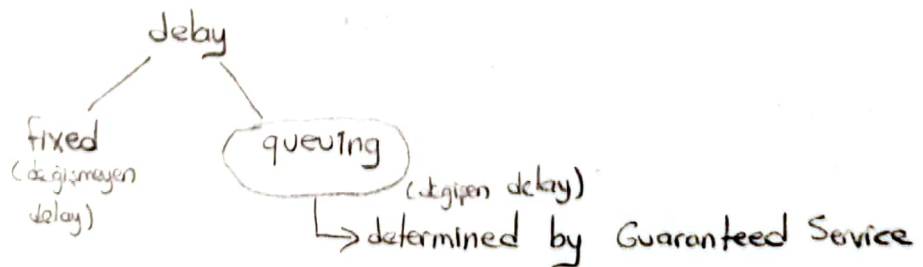 delay
fixed
(değişmeyen
delay)
queuing
(değişen delay)
determined by Guaranteed Service